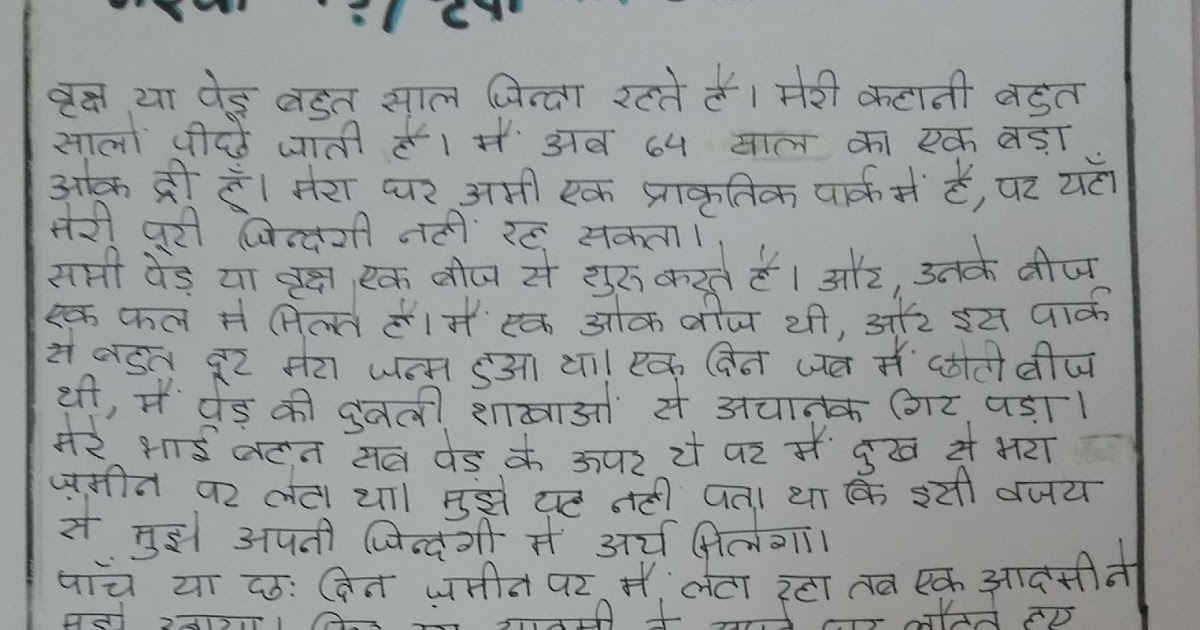 वृक्ष या पेड़ बहुत साल जिन्दा रहते हैं। मेरी कहानी बहुत
सालों पीछे जाती है। मैं अब 64 साल का एक बड़ा
ओक ट्री हूँ। मेरा घर अभी एक प्राकृतिक पार्क में है, पर यहाँ
मेरी पूरी जिन्दगी नहीं रह सकता।
सभी पेड़ या वृक्ष एक बीज से शुरु करते है। और, उनके बीज
एक फल मे मिलते है। मैं एक ओक बीज थी, और इस पार्क
से बहुत दूर मेरा जन्म हुआ था। एक दिन जब मैं छोती बीज
थी, मैं पेड़ की दुबली शाखाओं से अचानक गिर पड़ा।
मेरे भाई बहन सब पेड़ के ऊपर थे पर मैं दुख से भरा
ज़मीन पर लेटा था। मुझे यह नही पता था कि इसी वजय
से मुझे अपनी जिन्दगी में अर्थ मिलेगा।
पाँच या छः दिन ज़मीन पर मैं लेटा रहा तब एक आदमी ने